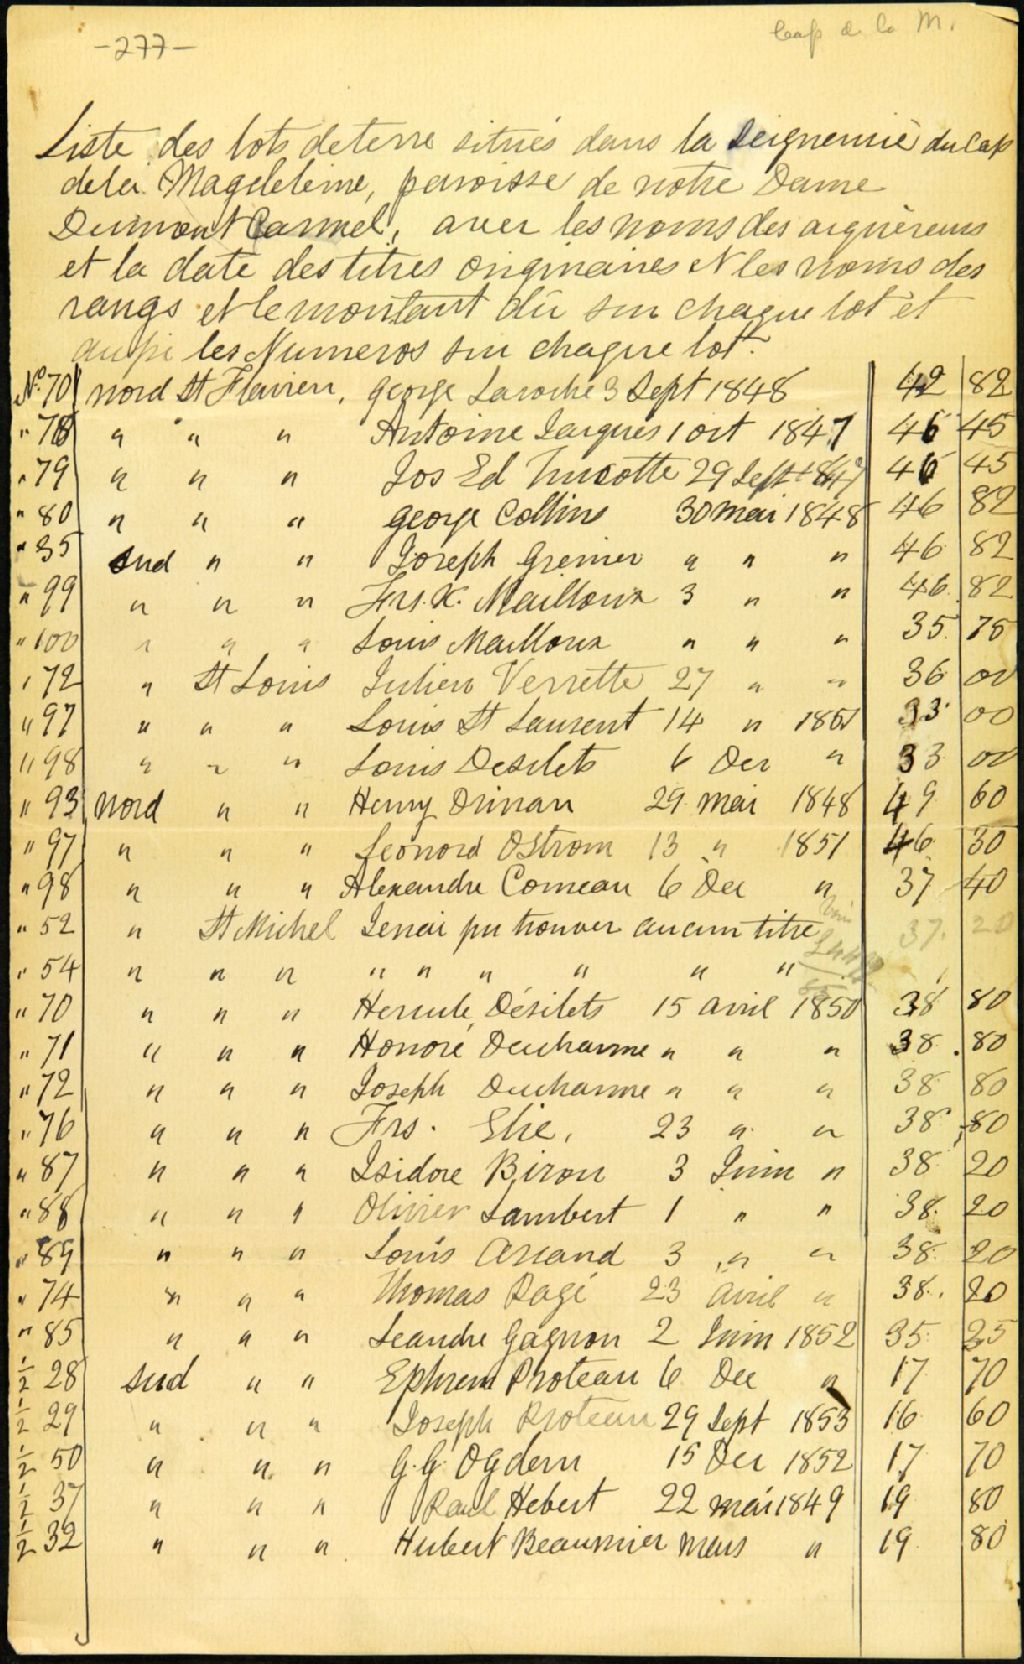 -277-
Cap de la M.
Liste des lots de terre situés dans la Seigneurie du Cap
de la Magdeleine, paroisse de notre Dame
Dumont Carmel, avec les noms des acquéreurs
et la date des titres originaires et les noms des
rangs et le montant dû sur chaque lot et
aussi les Numeros sur chaque lot.
No. 70 nord St Flavien, George Laroche 3 Sept 1848 42 82
" 78 " " " Antoine Jacques 1 oct 1847 46 45
" 79 " " " Jos Ed Turcotte 29 Sept 1847 46 45
" 80 " " " George Collins 30 mai 1848 46 82
" 35 sud " " Joseph Grenier " " " 46 82
" 99 " " " Frs. X. Mailloux 3 " " 46 82
" 100 " " " Louis Mailloux " " " 35 78
" 72 " St Louis Julien Verrette 27 " " 36 00
" 97 " " " Louis St Laurent 14 " 1851 33 00
" 98 " " " Louis Desilets 6 Dec " 33 00
" 93 nord " " Henry Drinan 29 mai 1848 49 60
" 97 " " " Leonord Ostrom 13 " 1851 46 30
" 98 " " " Alexandre Comeau 6 Dec " 37 40
" 52 " St Michel Jenai pu trouver aucun titre 37. 20
" 54 " " " " " " " " "
" 70 " " " Hercule Désilets 15 avril 1850 38 80
" 71 " " " Honoré Ducharme " " " 38 . 80
" 72 " " " Joseph Ducharme " " " 38 80
" 76 " " " Frs. Elie, 23 " " 38 80
" 87 " " " Isidore Biron 3 Juin " 38 20
" 88 " " " Olivier Lambert 1 " " 38. 20
" 89 " " " Louis Arcand 3 " " 38. 20
" 74 " " " Thomas Pagé 23 avril " 38. 20
" 85 " " " Leandre Gagnon 2 Juin 1852 35 25
1/2 28 sud " " Ephrem Proteau 6 Dec " 17 70
1/2 29 " " " Joseph Proteau 29 Sept 1853 16 60
1/2 50 " " " G. G. Ogdem 15 Dec 1852 17 70
1/2 37 " " " Paul Hebert 22 mai 1849 19 80
1/2 32 " " " Hubert Beaumier mars " 19 80